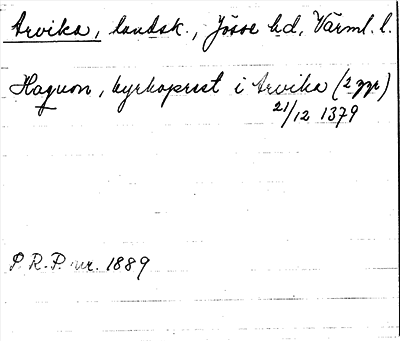 Arvika, landsk., Jösse hd, Värml. l.
Haquon, kyrkoprest i Arvika (2 ggr)
21/12 1379
S. R. P. nr. 1889